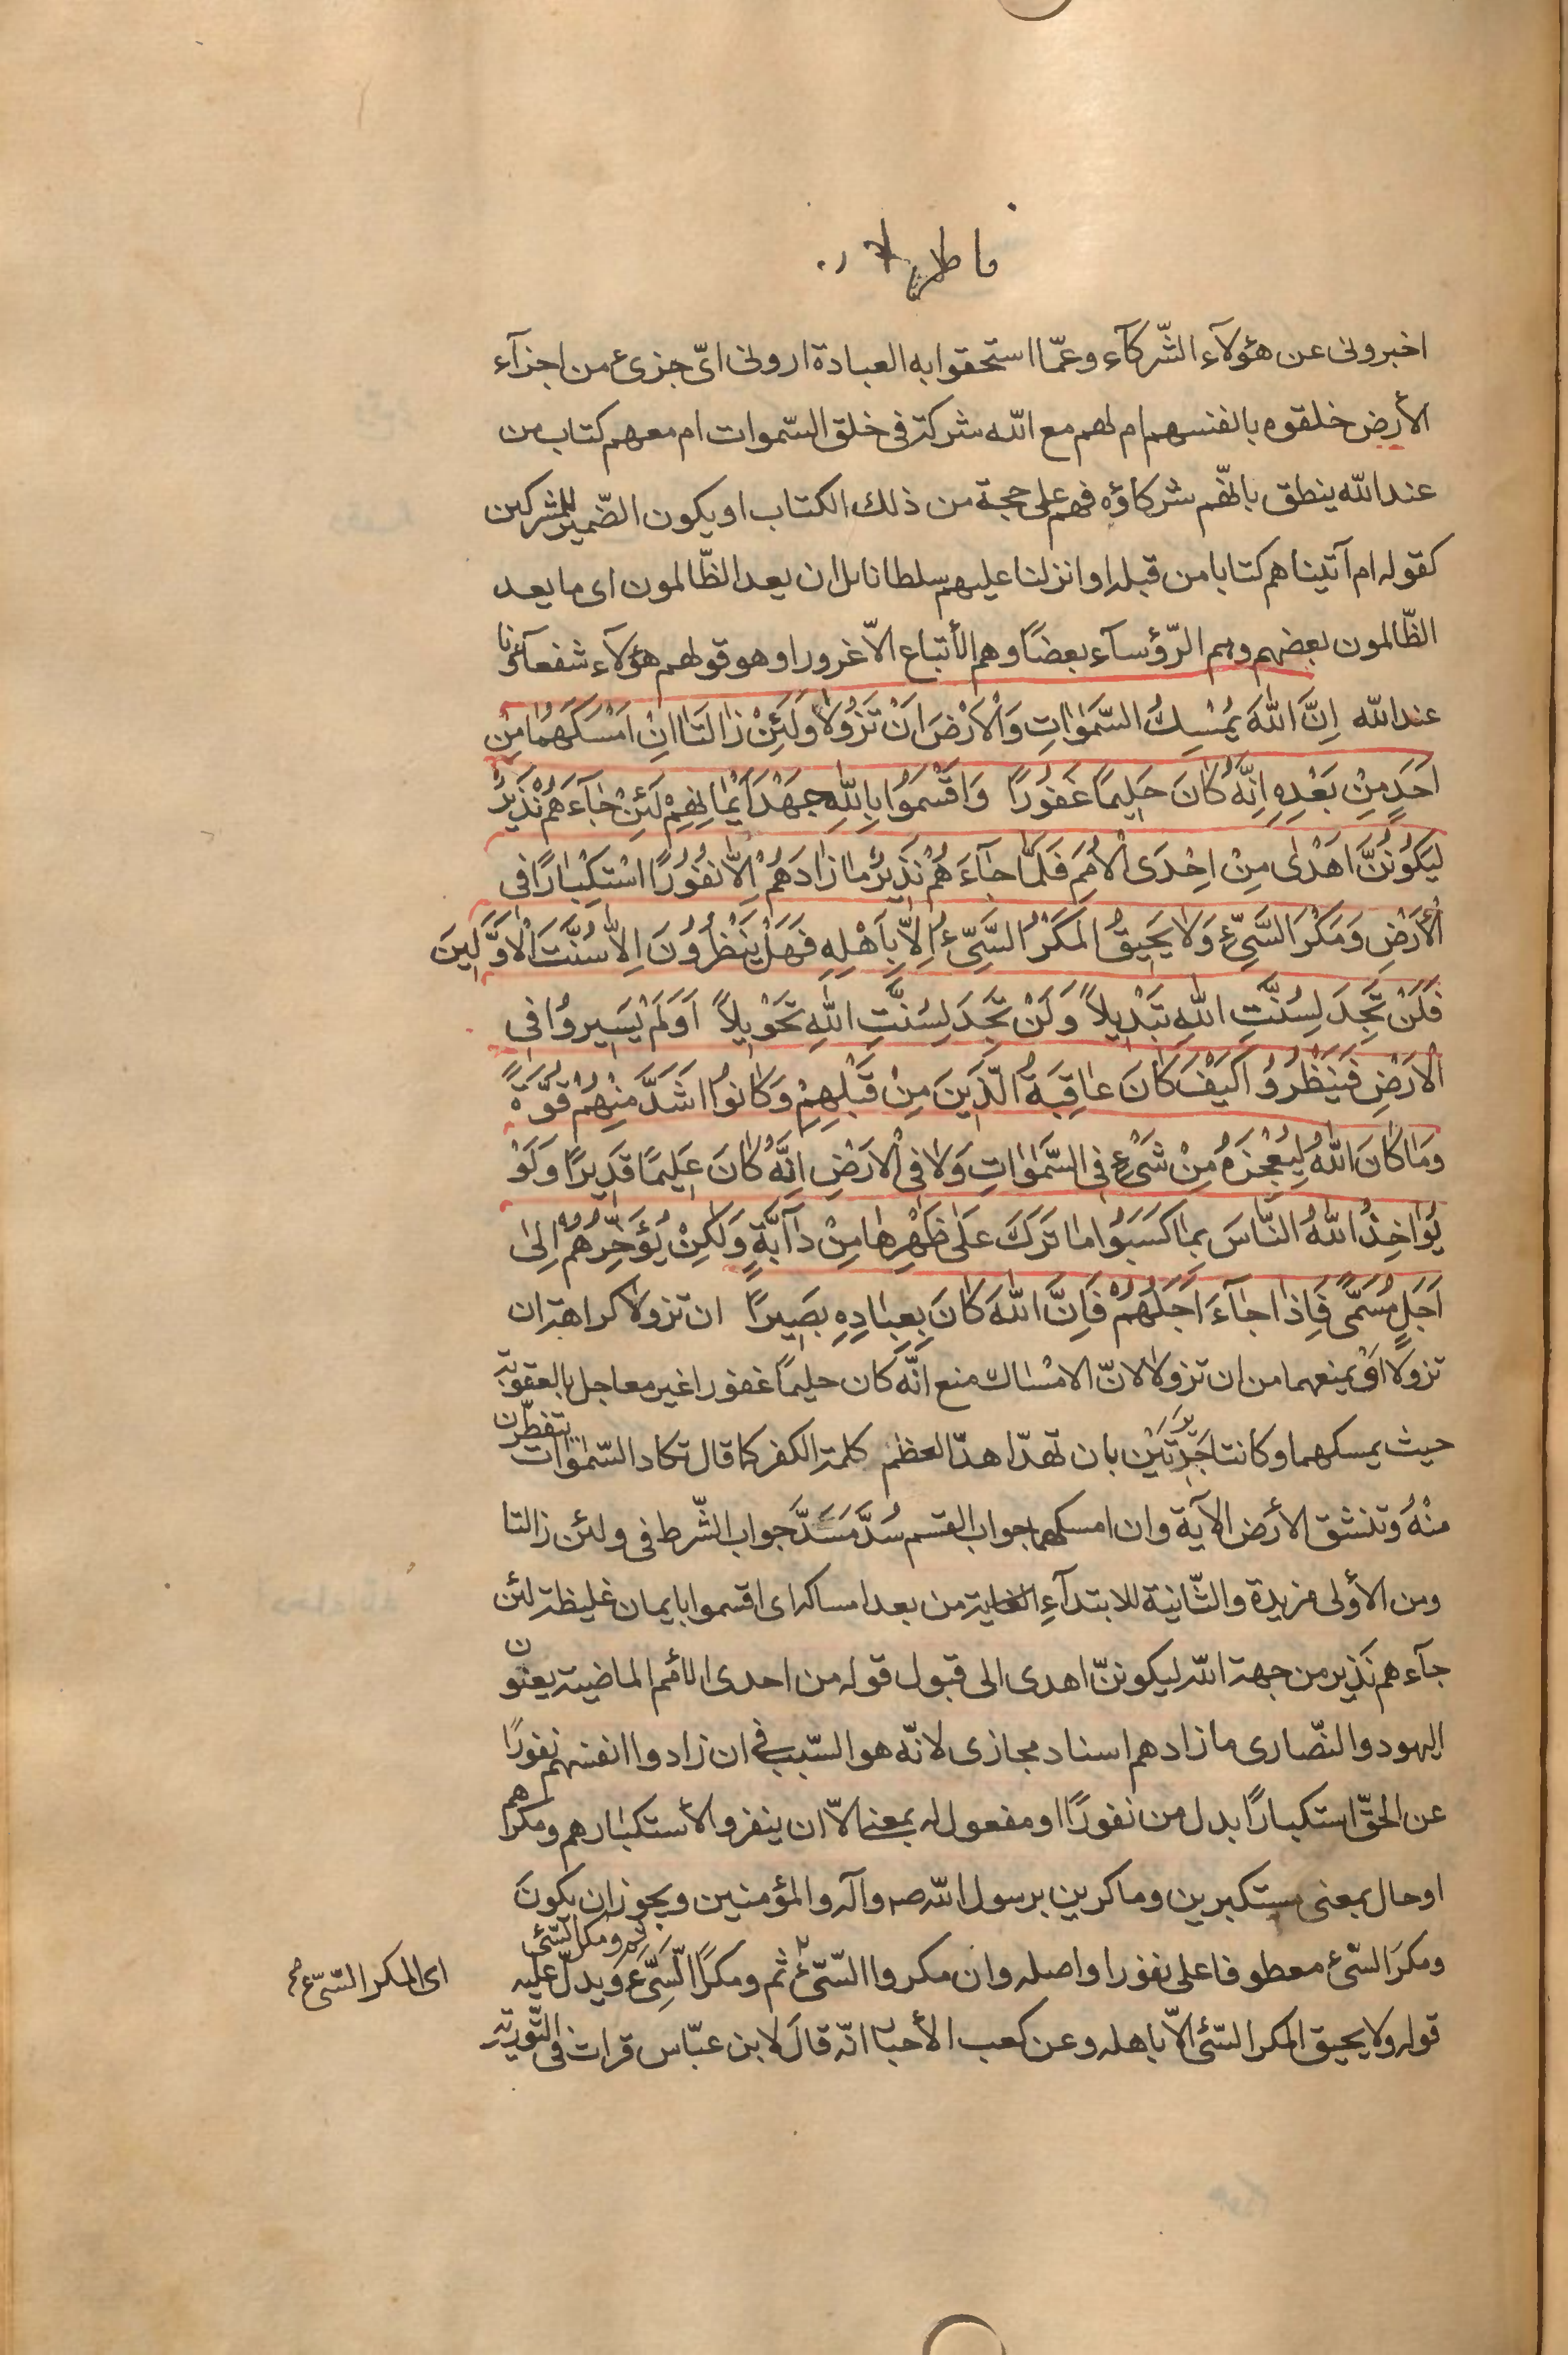 فاطر
اخبرونى عن هؤلآء الشّركآء وعمّا استحقوا به العبادة ارونى اىّ جزىء من اجزآء
الأرض خلقوه بانفسهم ام لهم مع الله شركة فى خلق السّموات ام معهم كتاب من
عند الله ينطق بانهّم شركاؤه فهم على حجة من ذلك الكتاب او يكون الضّمير للمشركين
كقوله ام آتيناهم كتابا من قبله او انزلنا عليهم سلطانا بل ان يعد الظّالمون اى ما يعد
الظّالمون بعضهم وهم الرّؤسآء بعضًا وهم الأتباع الاّ غرورا وهو قولهم هؤلآء شفعآؤنا
عند الله اِنَّ اللهَ يُمْسِكُ السَّمَوٰاتِ وَالْاَرْضَ اَنْ تَزُولاٰ وَلَئِنْ زٰالَتٰا اِنْ اَمْسَكَهُمٰا مِنْ
اَحَدٍ مِنْ بَعْدِهِ اِنَّهُ كٰانَ حَلِيمًا غَفُورًا وَاَقْسَمُوا بِاللّٰهِ جَهْدَ اَيْمٰانِهِمْ لَئِنْ جٰآءَهُمْ نَذِيرٌ
لَيَكُونُنَّ اَهْدٰى مِنْ اِحْدَى الْاُمَمِ فَلَمّٰا جٰآءَهُمْ نَذِيرٌ مٰا زٰادَهُمْ اِلاّٰ نُفُورًا اسْتِكْبٰارًا فِى
الْأَرْضِ وَمَكْرَ السَّيِّىءِ وَلاٰ يَحِيقُ الْمَكْرُ السَّيِّىءُ اِلاّٰ بِاَهْلِهِ فَهَلْ يَنْظُرُونَ اِلاّٰ سُنَّتَ الْاَوَّلِينَ
فَلَنْ تَجِدَ لِسُنَّتِ اللهِ تَبْدِيلاً وَلَنْ تَجِدَ لِسُنَّتِ اللهِ تَحْوِيلاً اَوَلَمْ يَسِيرُوا فِى
الْاَرْضِ فَيَنْظُرُوا كَيْفَ كٰانَ عٰاقِبَةُ الَّذِينَ مِنْ قَبْلِهِمْ وَكٰانُوا اَشَدَّ مِنْهُمْ قُوَّةً
وَمٰا كٰانَ اللهُ لِيُعْجِزَهُ مِنْ شَىْءٍ فِى السَّمٰوٰاتِ وَلاٰ فِى الْاَرْضِ اِنَّهُ كٰانَ عَلِيمًا قَدِيرًا وَلَوْ
يُؤٰاخِذُ اللهُ النّٰاسَ بِمٰا كَسَبُوا مٰا تَرَكَ عَلٰى ظَهْرِهٰا مِنْ دٰآبَّةٍ وَلٰكِنْ يُؤَخِّرُهُمْ اِلىٰ
اَجَلٍ مُسَمًّى فَاِذٰا جٰآءَ اَجَلُهُمْ فَاِنَّ اللهَ كٰانَ بِعِبٰادِهِ بَصِيرًا ان تزولا كراهة ان
تزولا اوْ يمنعهما من ان تزولا لانّ الامْسٰاك منع انّه كان حليمًا غفورا غير معاجل بالعقوبة
حيث يمسكهما وكانتا جَدِيرَتَيْن بان تهدّا هدّا لعظم كلمة الكفر كما قال تكاد السّمٰوات يتفطّرن
منْهُ وتنشق الأرض الآية وان امسكهما جواب القسم سُدَّ مَسَدَّ جواب الشّرط فى ولئن زالتا
ومن الأولى مزيدة والثّانية للابتدآءِ الغاية من بعد امساكه اى اقسموا بايمان غليظة لئن
جآءهم نَذِير من جهة الله ليكوننّ اهدى الى قبول قوله من احدى الأمم الماضية يعنون
اليهود والنصّارى ما زادهم اسناد مجازى لانّه هو السّبب فى ان زادوا انفسهم نفورًا
عن الحقّ استكبارًا بدل من نفورًا او مفعول له بمعنى الاّ ان ينفروا لأستكبٰارهم ومكرهم
او حال بمعنى مستكبرين وماكرين برسول الله صه وآله والمؤمنين ويجوز ان يكون
ومكرَ السّىء معطوفا على نفورا واصله وان مكروا السّىّء ثم ومكرًا السَّيِّىءَ ثم ومكر السّيّئ ويدلّ عليه
اى المكر السّىّء
قوله ولا يحيق المكر السّىء الاّ باهله وعن كعب الأحبار انّه قالَ لابن عبّاس قرات فى التّورية